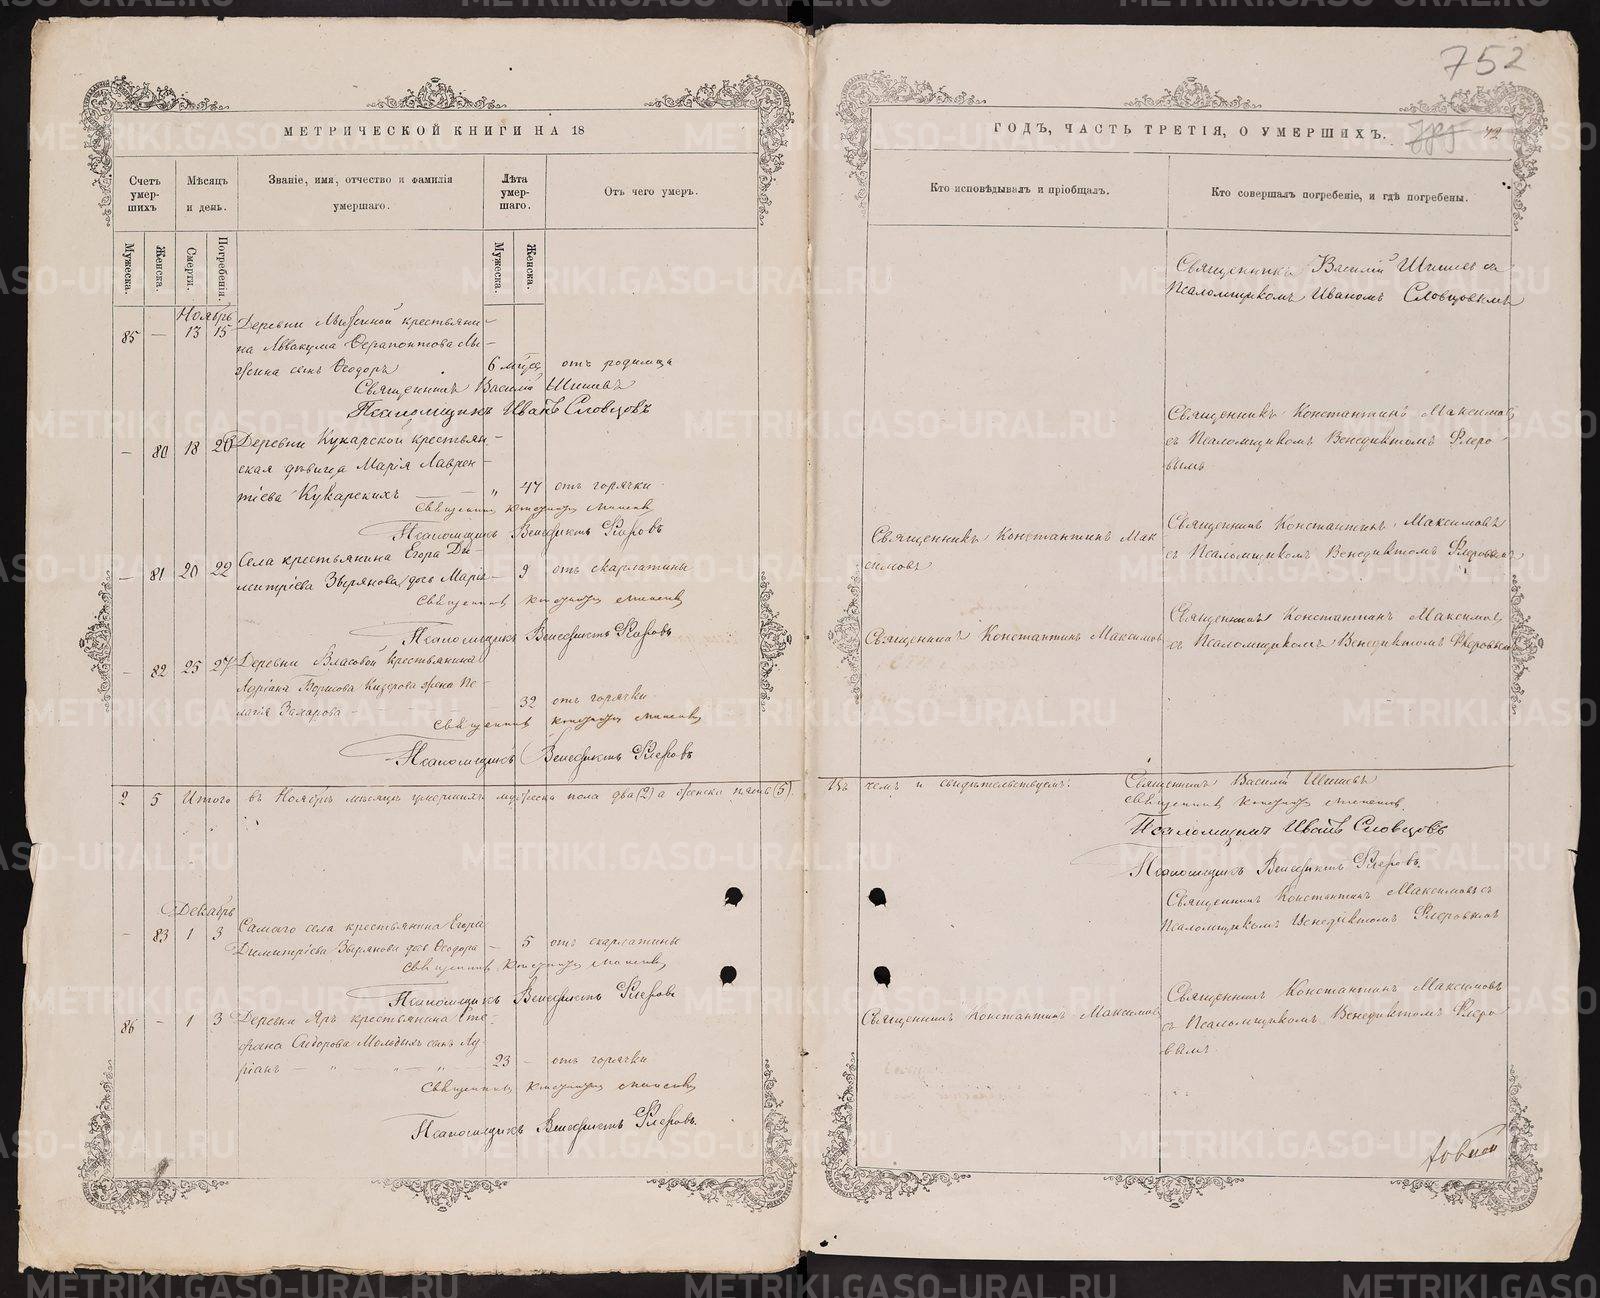 752
МЕТРИЧЕСКОЙ КНИГИ НА 18
Счетъ умер-шихъ
Мѣсяцъ и день.
Званіе, имя, отчество и фамилія умершаго.
Лѣта умер-шаго.
Отъ чего умеръ.
Мужеска.
Женска.
Смерти.
Погребенія.
Мужеска.
Женска.
Ноябрь
85 — 13 15 Деревни крестьяни-
на Аввакума Ферапонтова
сынъ Ѳеодоръ 6 мѣсец отъ родимца
Священникъ Василій Шишевъ
Псаломщикъ Иванъ Словцовъ
— 80 18 20 Деревни Кукарской крестьян-
ская дѣвица Марія Лаврен-
тіева Кукарскихъ — „ 47 отъ горячки
Священникъ
Псаломщикъ Венедиктъ Флеровъ
— 81 20 22 Села крестьянина Егора Ди-
митріева Зырянова дочь Марія — 9 отъ скарлатины
Священникъ
Псаломщикъ Венедиктъ Флеровъ
— 82 25 27 Деревни Власовой крестьянина
Адріана Борисова жена Пе-
лагія Захарова 32 отъ горячки
Священникъ
Псаломщикъ Венедиктъ Флеровъ
2 5 Итого въ Ноябрѣ мѣсяцѣ умершихъ мужеска пола два (2) а женска пять (5).
Декабрь
— 83 1 3 Самаго села крестьянина Егора
Димитріева Зырянова дочь Ѳеодора — 5 отъ скарлатины
Священникъ
Псаломщикъ Венедиктъ Флеровъ
86 — 1 3 Деревни Яръ крестьянина Сте-
фана Сидорова Молодыхъ сынъ Ад-
ріанъ — „ — „ — „ 23 — отъ горячки
Священникъ
Псаломщикъ Венедиктъ Флеровъ
ГОДЪ, ЧАСТЬ ТРЕТІЯ, О УМЕРШИХЪ.
Кто исповѣдывалъ и пріобщалъ.
Кто совершалъ погребеніе, и гдѣ погребены.
Священникъ Василій Шишевъ съ
Псаломщикомъ Иваномъ Словцовымъ
Священникъ Константинъ Максимовъ
съ Псаломщикомъ Венедиктомъ Флеро-
вымъ
Священникъ Константинъ Мак
симовъ
Священникъ Константинъ Максимовъ
съ Псаломщикомъ Венедиктомъ Флеровымъ
Священникъ Константинъ Максимовъ
Священникъ Константинъ Максимовъ
съ Псаломщикомъ Венедиктомъ Флеровымъ
Въ чемъ и свидѣтельствуемъ:
Священникъ Василій Шишевъ
Священникъ
Псаломщикъ Иванъ Словцовъ
Псаломщикъ Венедиктъ Флеровъ.
Священникъ Константинъ Максимовъ съ
Псаломщикомъ Венедиктомъ Флеровымъ
Священникъ Константинъ Максимовъ
Священникъ Константинъ Максимовъ
съ Псаломщикомъ Венедиктомъ Флеро
вымъ
METRIKI.GASO-URAL.RU